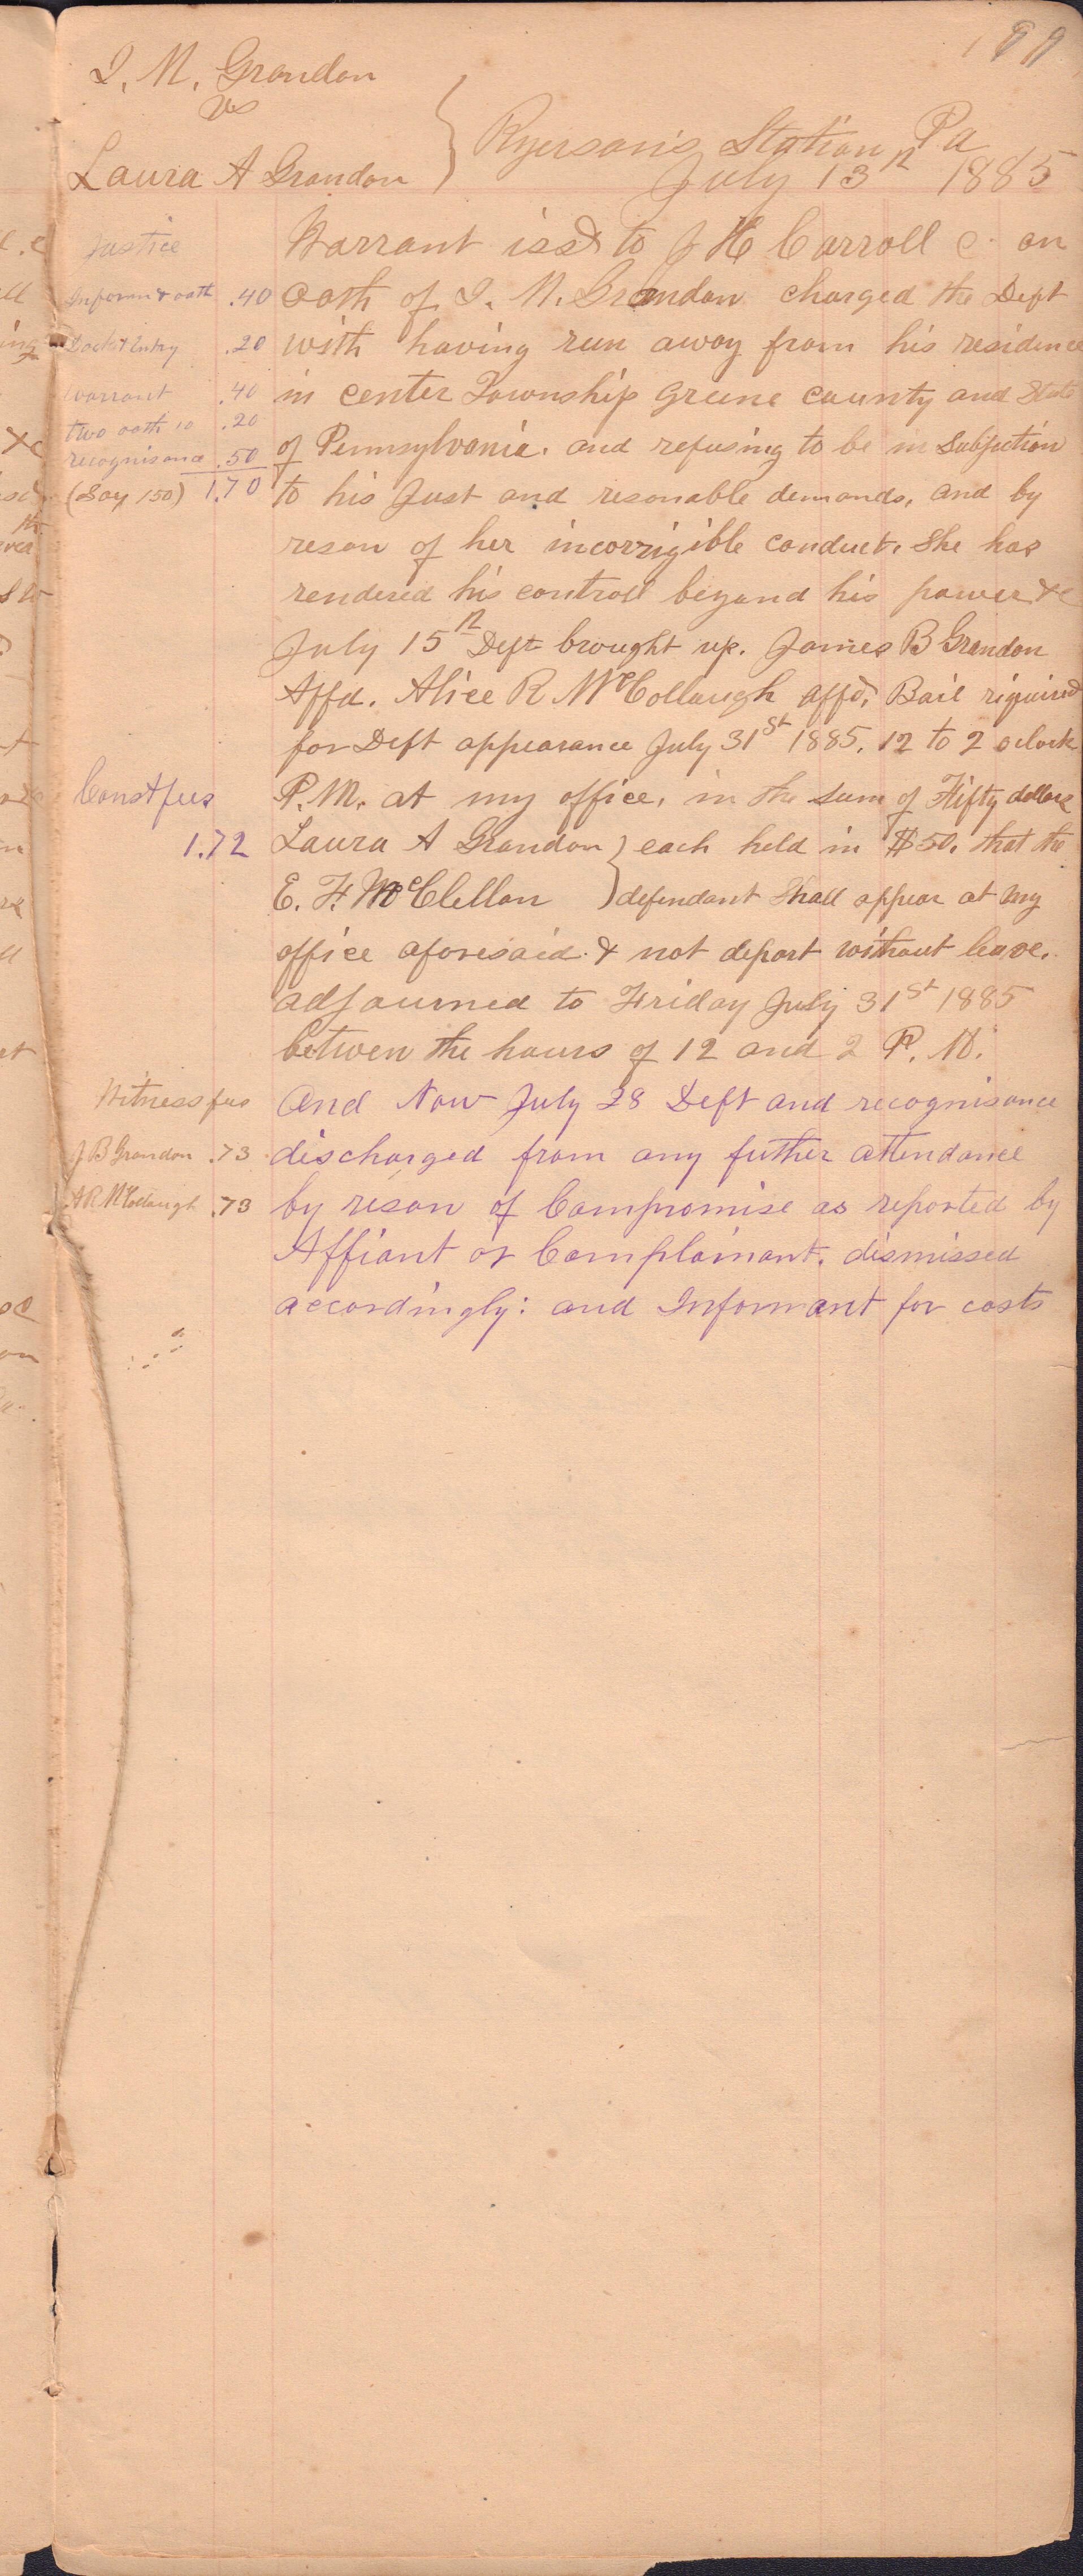 199
I. M. Grandon
vs
Laura A Grandon
Ryerson's Station Pa
July 13th 1885
Justice
Inform & oath .40
Dockt Entry .20
warrant .40
two oath 10 .20
recognisance .50
(Say 150) 1.70
Warrant issd to J H Carroll C. on
oath of I. M. Grandon charged the Deft
with having run away from his residence
in center Township Greene County and State
of Pennsylvania. and refusing to be in Subjection
to his Just and resonable demands, and by
reson of her incorrigible conduct. She has
rendered his controll beyond his power &c
July 15th Deft brought up. James B Grandon
Affd. Alice R McCollaugh affd, Bail riquired
for Deft appearance July 31st 1885. 12 to 2 oclock
P.M. at my office, in the Sum of Fifty dollars
Const fees
1.72
Laura A Grandon } each held in $50. that the
E. F. McClellan } defendant Shall appear at my
office aforesaid. & not depart without leave.
adjourned to Friday July 31st 1885
betwen the hours of 12 and 2 P. M.
Witness fees
J B Grandon .73
A R McCollaugh .73
And Now July 28 Deft and recognisance
discharged from any futher attendance
by rison of Compromise as reported by
Affiant or Complainant. dismissed
accordingly: and Informant for costs